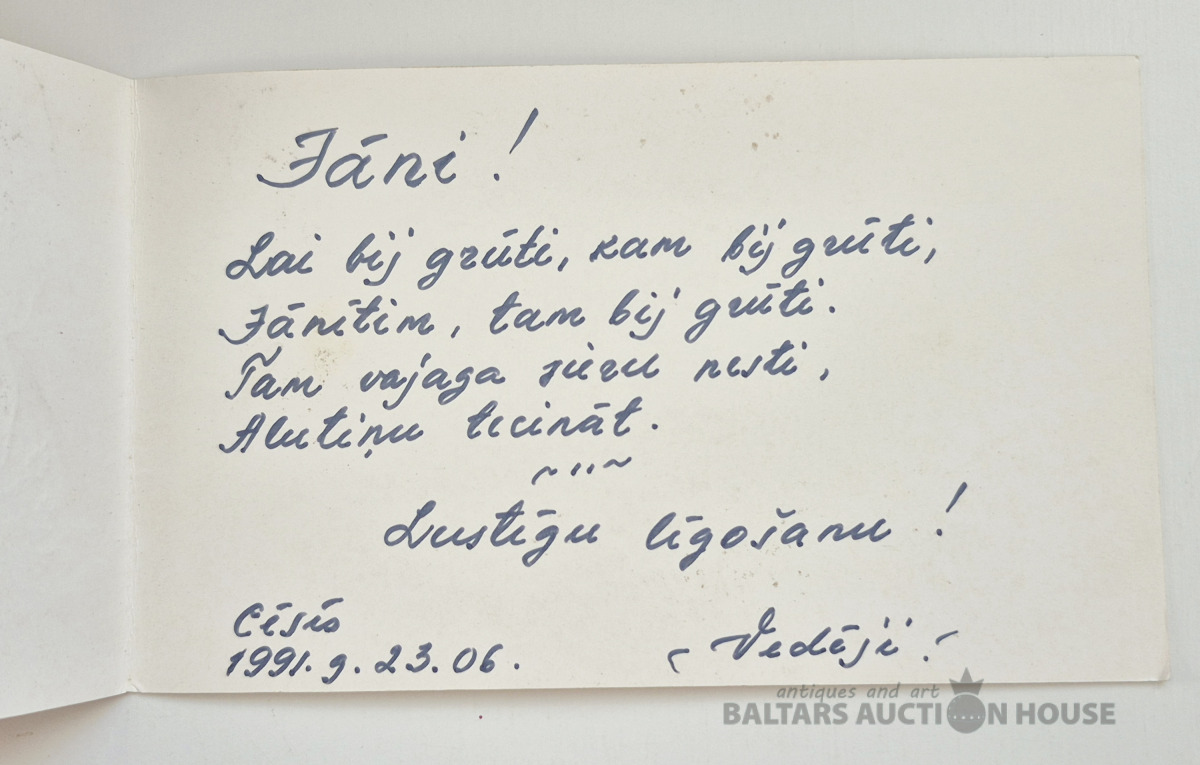 Jāni!
Lai bij grūti, kam bij grūti,
Jānītim, tam bij grūti.
Tam vajaga sieru nesti,
Alutiņu tecināt.
Lustīgu līgošanu!
Cēsīs
1991. g. 23. 06.
Vedēji
antiques and art
BALTARS AUCTION HOUSE